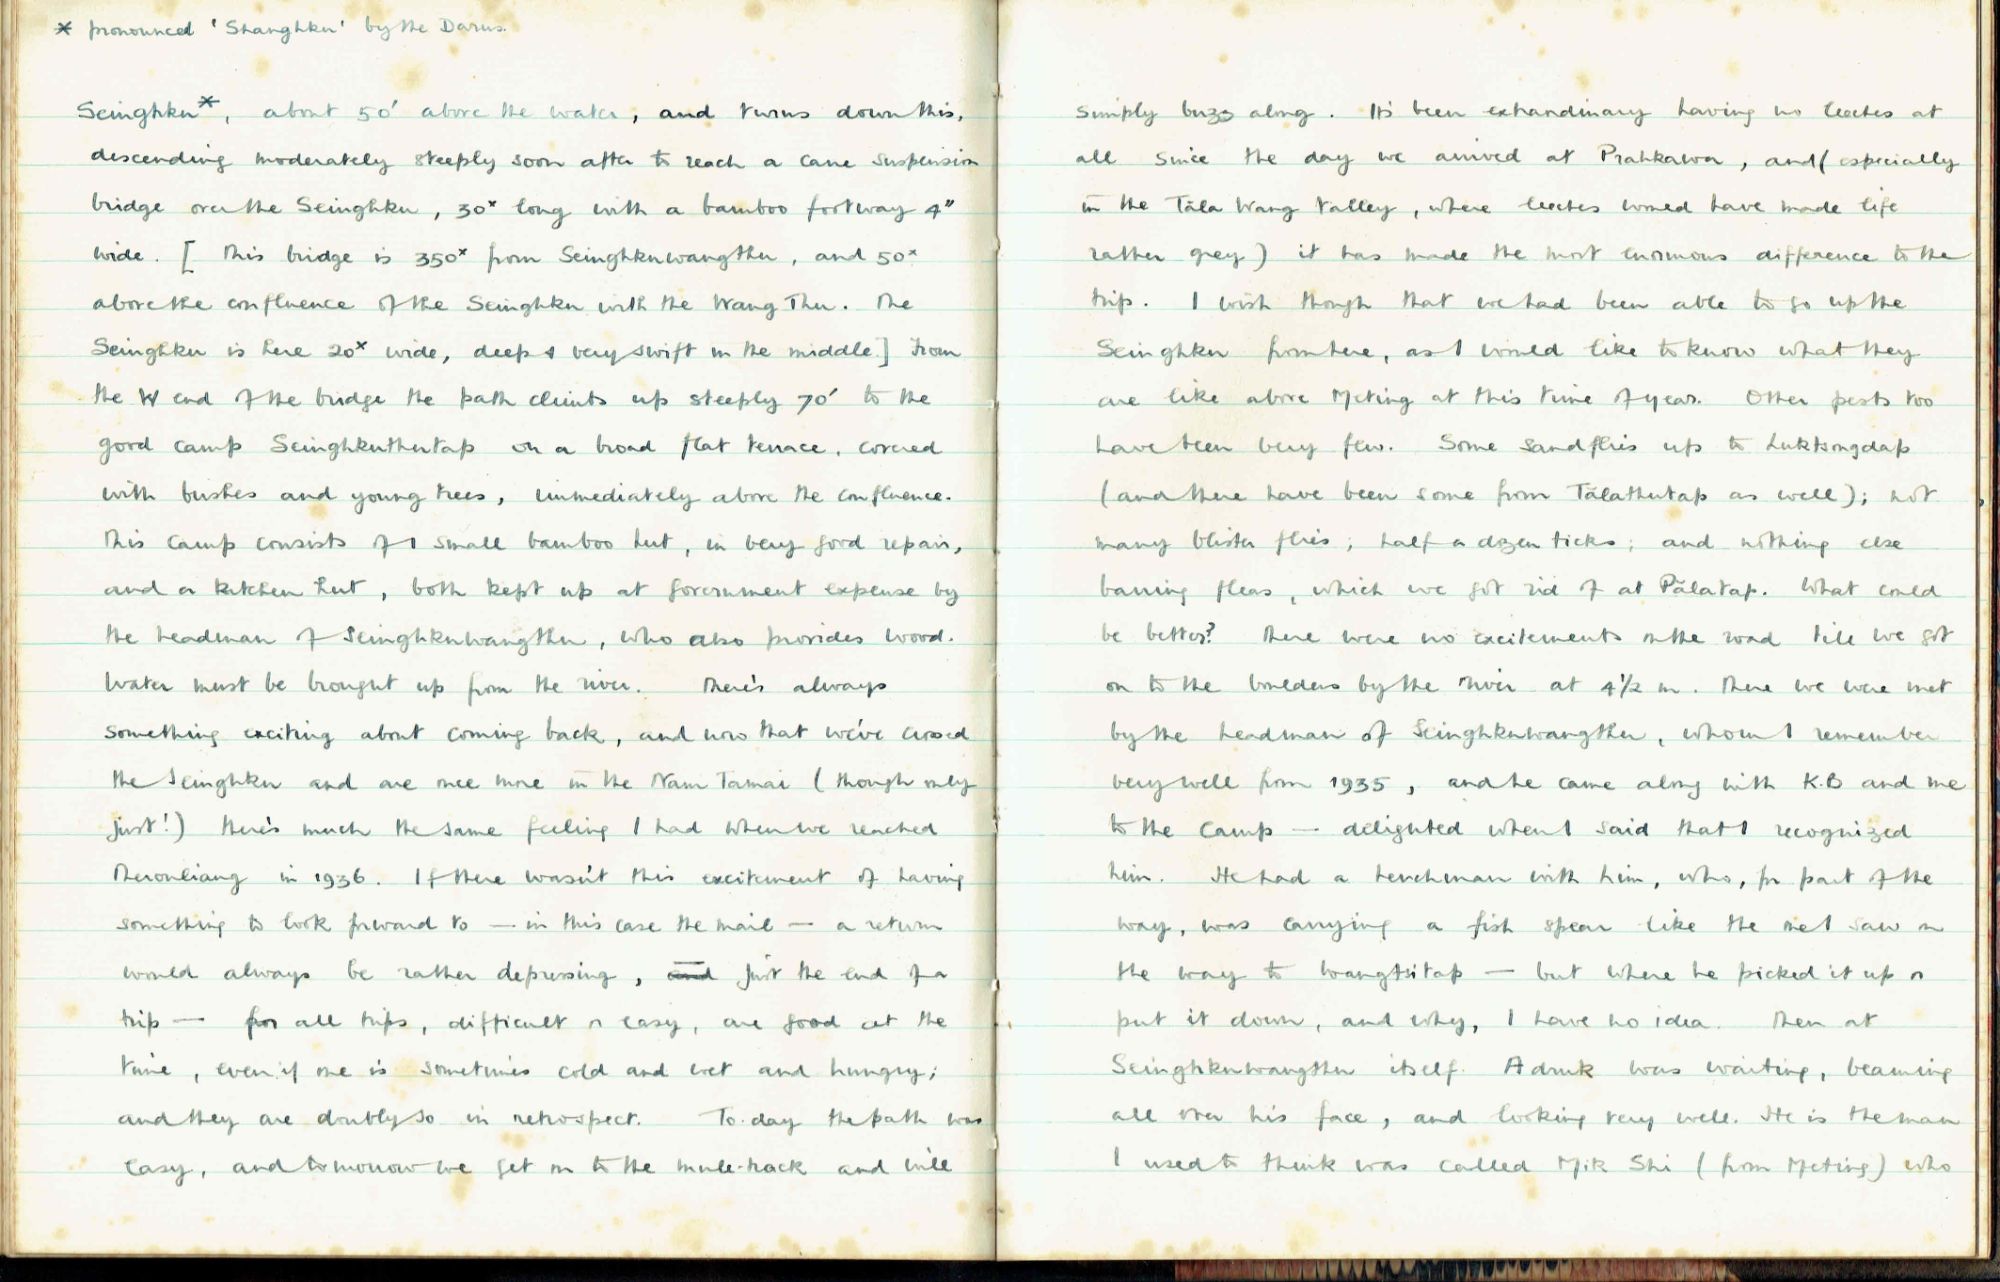 * pronounced 'Shanghku' by the Darus.
Seinghku*, about 50' above the water, and turns down this,
descending moderately steeply soon after to reach a cane suspension
bridge over the Seinghku, 30x long with a bamboo footway 4"
wide. [ This bridge is 350x from Seinghkuwangthu, and 50x
above the confluence of the Seinghku with the Wang Thu. The
Seinghku is here 20x wide, deep & very swift in the middle.] From
the W end of the bridge the path climbs up steeply 70' to the
good camp Seinghkuthutap on a broad flat terrace, covered
with bushes and young trees, immediately above the confluence.
This camp consists of 1 small bamboo hut, in very good repair,
and a kitchen hut, both kept up at government expense by
the headman of Seinghkuwangthu, who also provides wood.
Water must be brought up from the river. There's always
something exciting about coming back, and now that we've crossed
the Seinghku and are once more in the Nam Tamai (though only
just!) there's much the same feeling I had when we reached
Theronliang in 1936. If there wasn't this excitement of having
something to look forward to — in this case the mail — a return
would always be rather depressing, and just the end of a
trip — for all trips, difficult or easy, are good at the
time, even if one is sometimes cold and wet and hungry;
and they are doubly so in retrospect. To-day the path was
easy, and tomorrow we get on to the mule-track and will
simply buzz along. It's been extraordinary having no leeches at
all since the day we arrived at Prahkawa, and (especially
in the Tāla Wang Valley, where leeches would have made life
rather grey) it has made the most enormous difference to the
trip. I wish though that we had been able to go up the
Seinghku from here, as I would like to know what they
are like above Meting at this time of year. Other pests too
have been very few. Some sandflies up to Luktsongdap
(and there have been some from Tālathutap as well); not
many blister flies; half a dozen ticks; and nothing else
barring fleas, which we got rid of at Pālatap. What could
be better? There were no excitements on the road till we got
on to the boulders by the river at 4½ m. There we were met
by the headman of Seinghkuwangthu, whom I remember
very well from 1935, and he came along with K.B and me
to the camp — delighted when I said that I recognized
him. He had a henchman with him, who, for part of the
way, was carrying a fish spear like the one I saw on
the way to Wangtsitap — but where he picked it up or
put it down, and why, I have no idea. Then at
Seinghkuwangthu itself Adruk was waiting, beaming
all over his face, and looking very well. He is the man
I used to think was called Mik Shi (from Meting) who